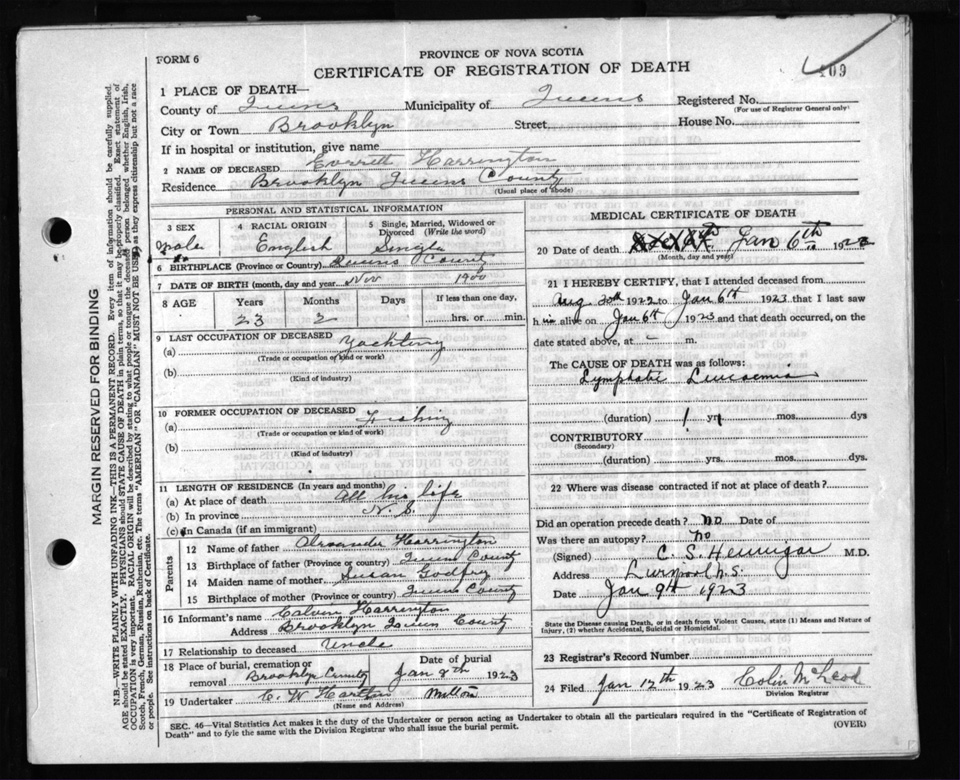 FORM 6
PROVINCE OF NOVA SCOTIA
CERTIFICATE OF REGISTRATION OF DEATH
109
1 PLACE OF DEATH—
County of Queens Municipality of Queens Registered No.
(For use of Registrar General only)
City or Town Brooklyn Street House No.
If in hospital or institution, give name
2 NAME OF DECEASED Everett Harrington
Residence Brooklyn Queens County
(Usual place of abode)
PERSONAL AND STATISTICAL INFORMATION
3 SEX Male
4 RACIAL ORIGIN English
5 Single, Married, Widowed or Divorced (Write the word) Single
6 BIRTHPLACE (Province or Country) Queens County
7 DATE OF BIRTH (month, day and year) Nov 1900
8 AGE Years Months Days If less than one day,
23 2 hrs. or min.
9 LAST OCCUPATION OF DECEASED
(a) Yachting
(Trade or occupation or kind of work)
(b)
(Kind of industry)
10 FORMER OCCUPATION OF DECEASED
(a) Fishing
(Trade or occupation or kind of work)
(b)
(Kind of industry)
11 LENGTH OF RESIDENCE (In years and months)
(a) At place of death All his life
(b) In province N. S.
(c) In Canada (if an immigrant)
Parents
12 Name of father Alexander Harrington
13 Birthplace of father (Province or country) Queens County
14 Maiden name of mother Susan Godfrey
15 Birthplace of mother (Province or country) Queens County
16 Informant's name Calvin Harrington
Address Brooklyn Queens County
17 Relationship to deceased Uncle
18 Place of burial, cremation or removal Brooklyn County
Date of burial Jan 8th 1923
19 Undertaker C. W. Milton
(Name and Address)
MEDICAL CERTIFICATE OF DEATH
20 Date of death Jan 6th 1923
(Month, day and year)
21 I HEREBY CERTIFY, that I attended deceased from
Aug 20th 1922 to Jan 6th 1923 that I last saw
him alive on Jan 6th 1923 and that death occurred, on the
date stated above, at - m.
The CAUSE OF DEATH was as follows:
Lymphatic Leucaemia
(duration) 1 yrs mos. dys
CONTRIBUTORY
(Secondary)
(duration) yrs. mos. dys.
22 Where was disease contracted if not at place of death?
Did an operation precede death? no Date of
Was there an autopsy? no
(Signed) C. S. Hennigar M.D.
Address Liverpool N.S.
Date Jan 9th 1923
State the Disease causing Death, or in death from Violent Causes, state (1) Means and Nature of Injury, (2) whether Accidental, Suicidal or Homicidal.
23 Registrar's Record Number
24 Filed Jan 12th 1923 Colin McLeod
Division Registrar
SEC. 46—Vital Statistics Act makes it the duty of the Undertaker or person acting as Undertaker to obtain all the particulars required in the "Certificate of Registration of
Death" and to fyle the same with the Division Registrar who shall issue the burial permit. (OVER)
MARGIN RESERVED FOR BINDING
N.B.—WRITE PLAINLY WITH UNFADING INK—THIS IS A PERMANENT RECORD. Every item of information should be carefully supplied.
AGE should be stated EXACTLY. PHYSICIANS should STATE CAUSE OF DEATH in plain terms, so that it may be properly classified. Exact statement of
OCCUPATION is very important. RACIAL ORIGIN will be described by stating to what people or tongue the deceased person belonged whether English, Irish,
Scotch, French, German, Russian, Ruthenian, etc. The terms "AMERICAN" or "CANADIAN" MUST NOT BE USED as they express citizenship but not a race
or people. See instructions on back of Certificate.